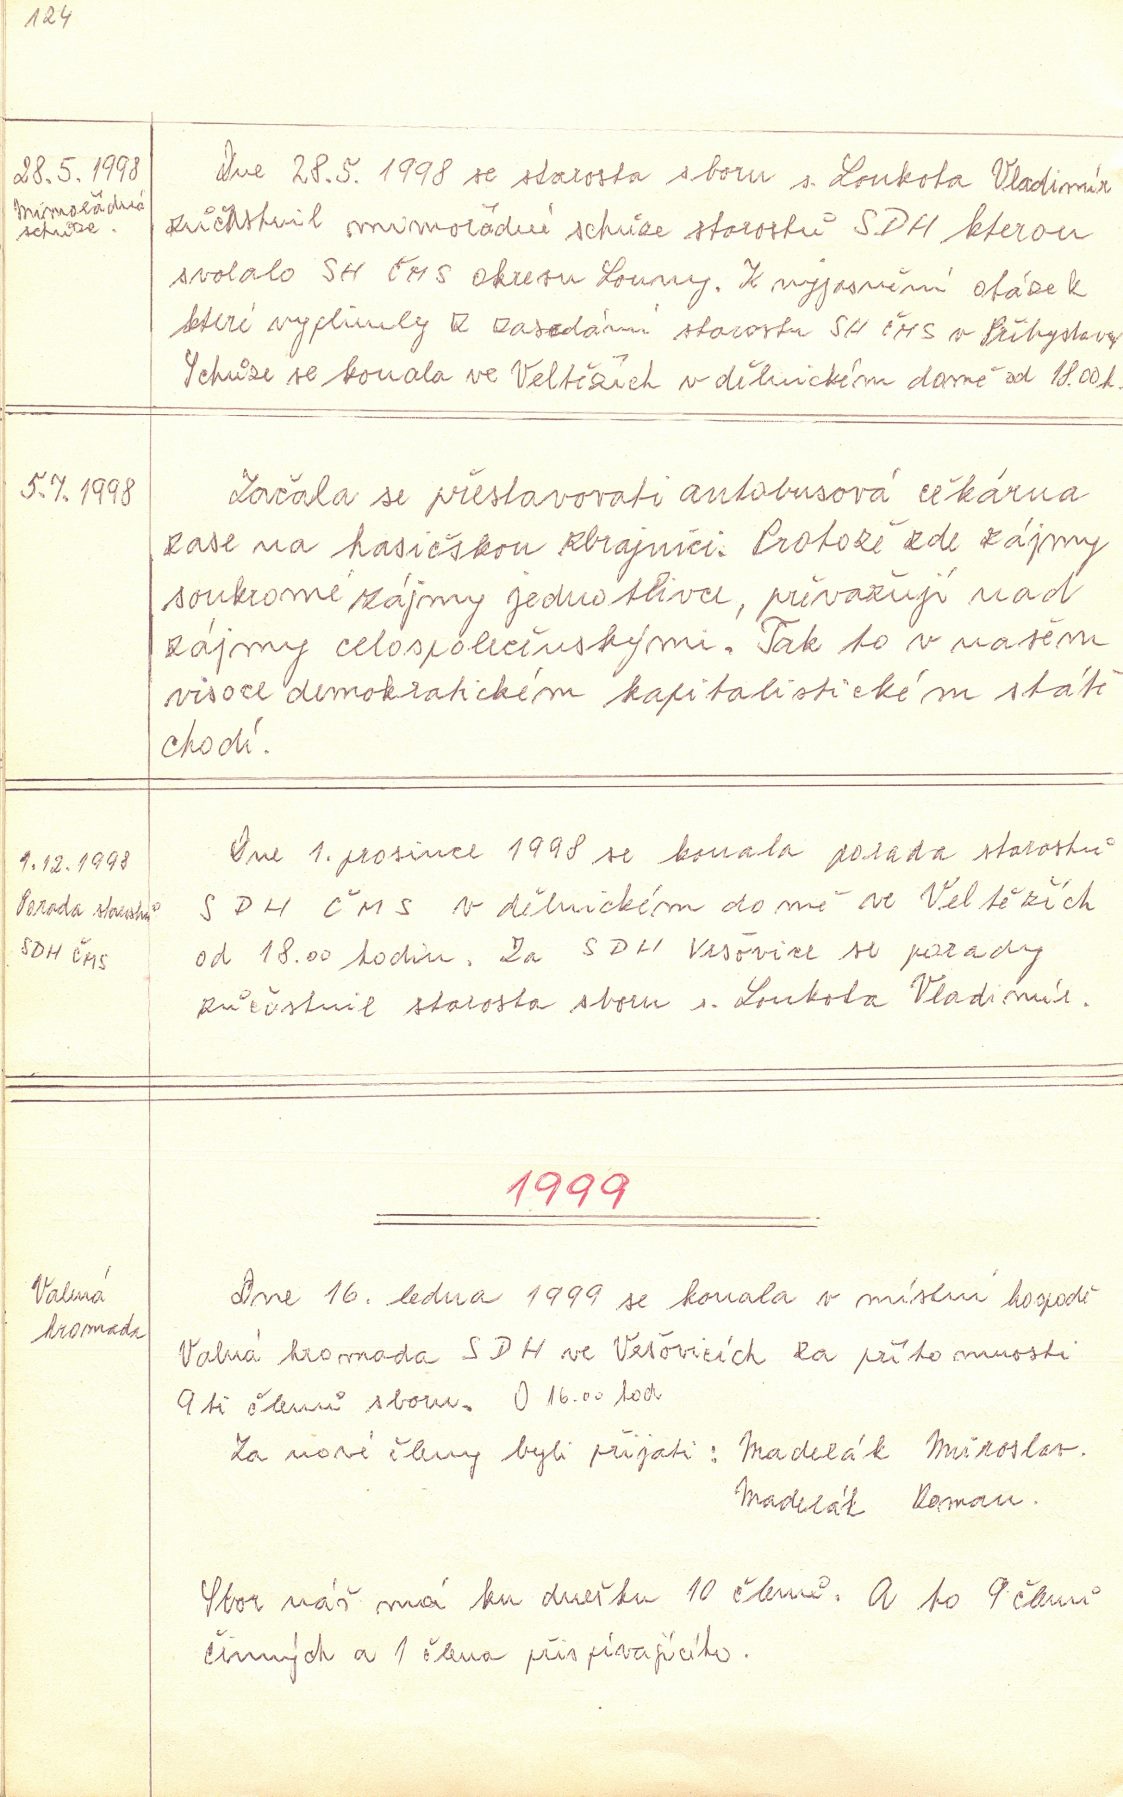 124
28.5.1998
Mimořádná
schůze.
Dne 28.5. 1998 se starosta sboru s. Loukota Vladimír
zůčastnil mimořádné schůze starostů SDH kterou
svolalo SH ČMS okresu Louny. K vyjasnění otázek
které vyplinuly z zasedání starostu SH ČMS v Přibyslavy
Schůze se konala ve Veltěžích v dělnickém domě od 18.00 h.
5.7. 1998
Začala se přestavovati autobusová čekárna
zase na hasičskou zbrojnici. Protože zde zájmy
soukromé zájmy jednotlivce, převažují nad
zájmy celospolečenskými. Tak to v našem
visoce demokratickém kapitalistickém státě
chodí.
1.12.1998
Porada starostů
SDH ČMS
Dne 1. prosince 1998 se konala porada starostů
SDH ČMS v dělnickém domě ve Veltěžích
od 18.00 hodin. Za SDH Vršovice se porady
zůčastnil starosta sboru s. Loukota Vladimír.
1999
Valná
hromada
Dne 16. ledna 1999 se konala v místní hospodě
Valná hromada SDH ve Vršovicích za přítomnosti
9ti členů sboru. O 16.00 hod
Za nové členy byli přijati: Maderák Miroslav.
Maderák Roman.
Sbor náš má ku dnešku 10 členů. A to 9 členů
činných a 1 člena přispívajícího.